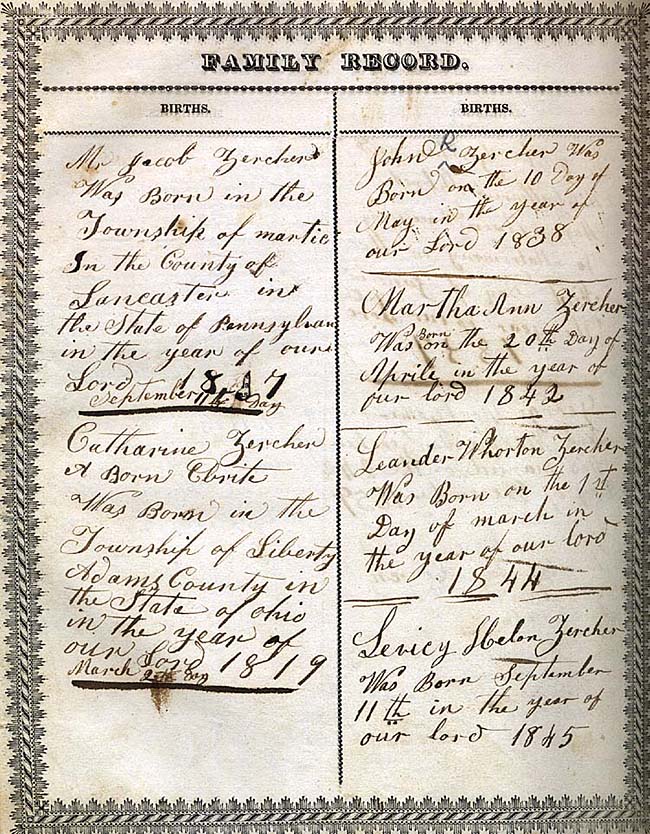 FAMILY RECORD.
BIRTHS.
Mr Jacob Zercher
Was Born in the
Township of martic
In the County of
Lancaster in
the State of Pennsylvan
in the year of our
Lord 1817
September 11th Day
Catharine Zercher
A Born Ebrite
Was Born in the
Township of Liberty
Adams County in
the State of ohio
in the year of
our Lord 1819
March Day
BIRTHS.
John R Zercher Was
Born on the 10 Day of
May in the year of
our Lord 1838
Martha Ann Zercher
Was Born on the 20th Day of
Aprile in the year of
our lord 1842
Leander Whorton Zercher
Was Born on the 1st
Day of march in
the year of our lord
1844
Levicy Helon Zercher
Was Born September
11th in the year of
our lord 1845